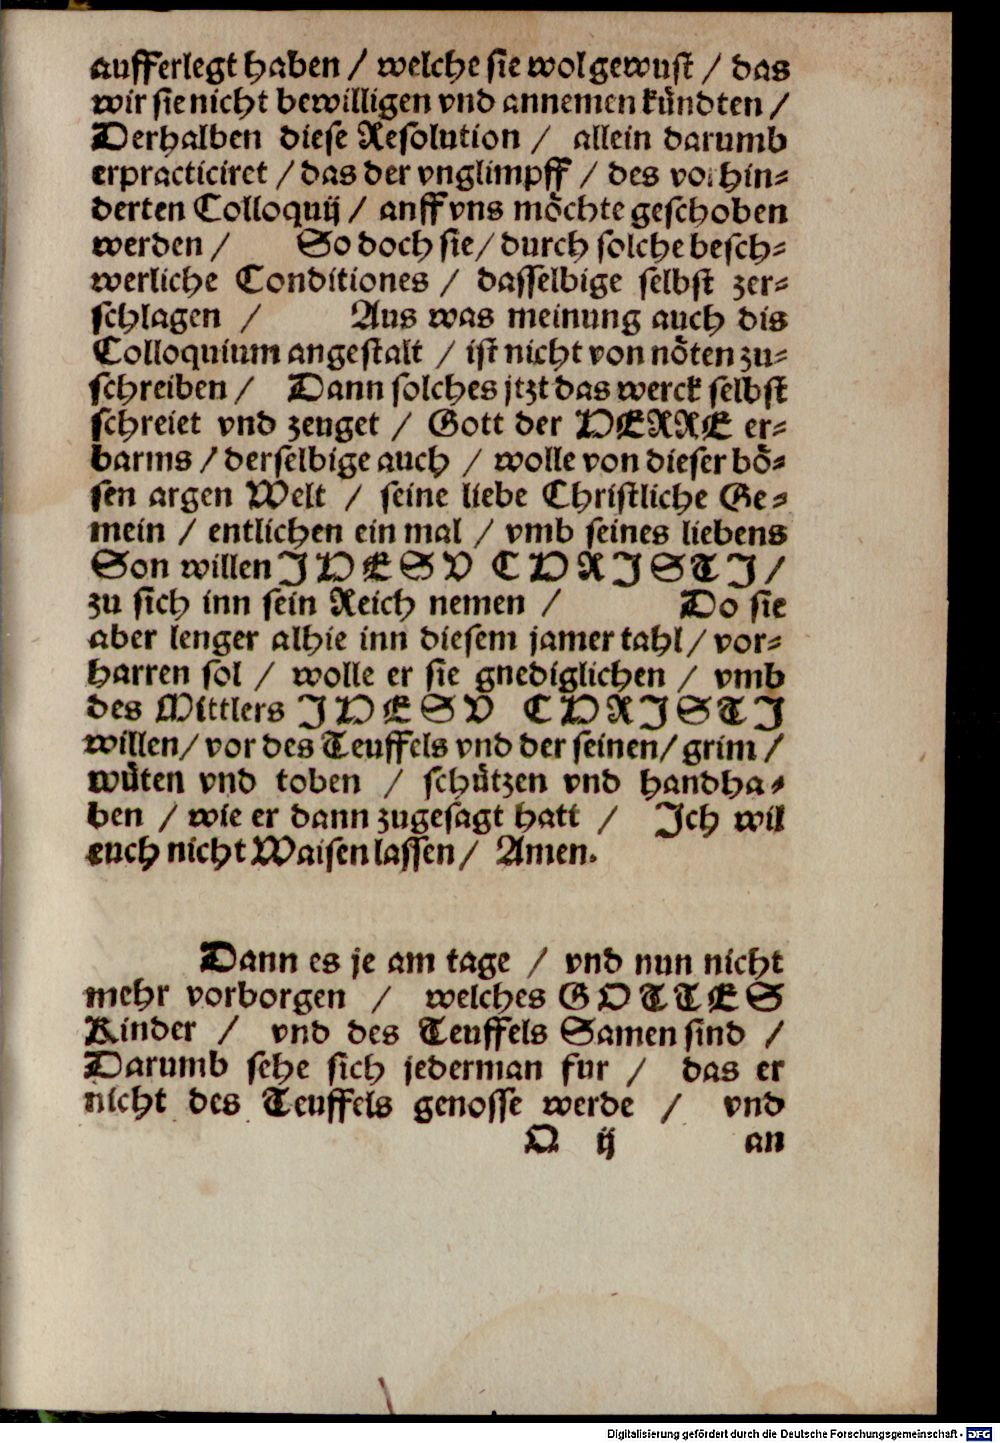 aufferlegt haben / welche sie wol gewust / das
wir sie nicht bewilligen vnd annemen kündten /
Derhalben diese Resolution / allein darumb
erpracticiret / das der vnglimpff / des vorhin-
derten Colloquij / anff vns möchte geschoben
werden / So doch sie / durch solche besch-
werliche Conditiones / dasselbige selbst zer-
schlagen / Aus was meinung auch dis
Colloquium angestalt / ist nicht von nöten zu-
schreiben / Dann solches jtzt das werck selbst
schreiet vnd zeuget / Gott der HERRE er-
barms / derselbige auch / wolle von dieser bö-
sen argen Welt / seine liebe Christliche Ge-
mein / entlichen ein mal / vmb seines liebens
Son willen JHESV CHRISTJ /
zu sich inn sein Reich nemen / Do sie
aber lenger alhie inn diesem jamer tahl / vor-
harren sol / wolle er sie gnediglichen / vmb
des Mittlers JHESV CHRISTJ
willen / vor des Teuffels vnd der seinen / grim /
wüten vnd toben / schützen vnd handha-
ben / wie er dann zugesagt hatt / Jch wil
euch nicht Waisen lassen / Amen.
Dann es je am tage / vnd nun nicht
mehr vorborgen / welches GOTTES
Kinder / vnd des Teuffels Samen sind /
Darumb sehe sich jederman fur / das er
nicht des Teuffels genosse werde / vnd
O ij an
Digitalisierung gefördert durch die Deutsche Forschungsgemeinschaft - DFG